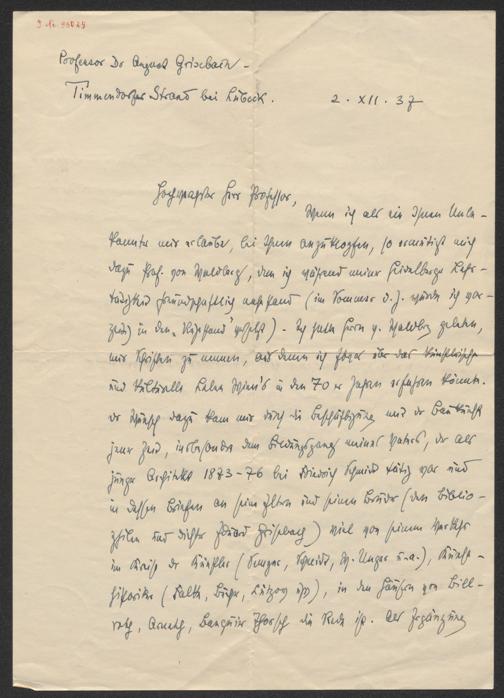 Professor Dr August Grisebach –
Timmendorfer Strand bei Lübeck.
2. XII. 37
Hochverehrter Herr Professor,
Wenn ich als ein Ihnen Unbe-
kannter mir erlaube, bei Ihnen anzuklopfen, so ermutigt mich
dazu Prof. von Waldberg, dem ich während meiner Heidelberger Lehr-
tätigkeit freundschaftlich nahe stand (im Sommer d. J. wurde ich vor-
zeitig in den "Ruhestand" versetzt). Ich hatte Herrn v. Waldberg gebeten,
mir Schriften zu nennen, aus denen ich über das künstlerische
und kulturelle Leben Wien's in den 70er Jahren erfahren könnte.
Der Wunsch dazu kam mir durch die Beschäftigung mit der Baukunst
jener Zeit, insbesondere dem Bildungsgang meines Vaters, der als
junger Architekt 1873–76 bei Friedrich Schmidt tätig war und
in dessen Briefen an seine Eltern und seinen Bruder (den Biblio-
philen und Dichter Eduard Grisebach) viel von seinem Verkehr
im Kreise der Künstler (Semper, Schmidt, W. Unger u. a.), Kunst-
historiker (Falke, Lützow), in den Häusern von Bill-
roth, Arneth, Banquier die Rede ist. Als Ergänzung